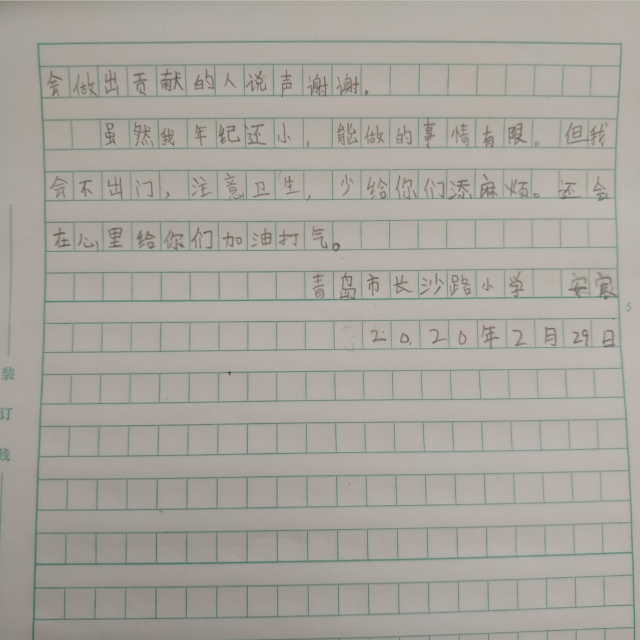 会做出贡献的人说声谢谢。
虽然我年纪还小，能做的事情有限。但我
会不出门，注意卫生，少给你们添麻烦。还会
在心里给你们加油打气。
青岛市长沙路小学 安宸
2020年2月29日
5
装
订
线